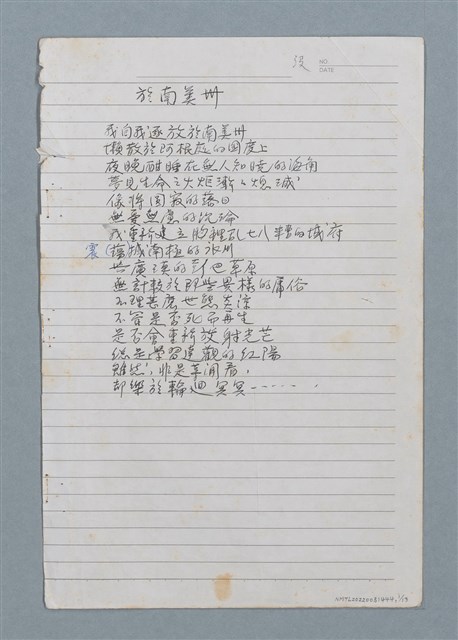 没
NO
DATE
於南美州
我自我逐放於南美州
懶散於阿根廷的國度上
夜晚酣睡在無人知曉的海角
夢見生命之火炬漸漸熄滅
像將圓寂的落日
無憂無慮的沉淪
我重新建立胸裡亂七八糟的城府
震撼南極的冰川
與廣漠的彭巴草原
無計較於那些異樣的庸俗
不理甚麼世態
不管是否死而再生
是否會重新放射光芒
總是學習達觀的紅陽
雖然,非是等閒看,
卻樂於輪迴冥冥······.
NMTL20220031444, 1/13